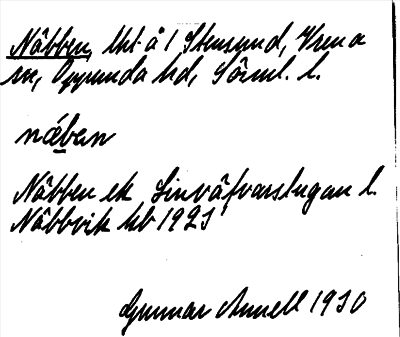 Näbben, lht å 1 Stensund, Vrena
sn, Oppunda hd, Söml. l.
næban
Näbben ek Linväfvarstugan l.
Näbbvik kb 1921
Gunnar Annell 1930